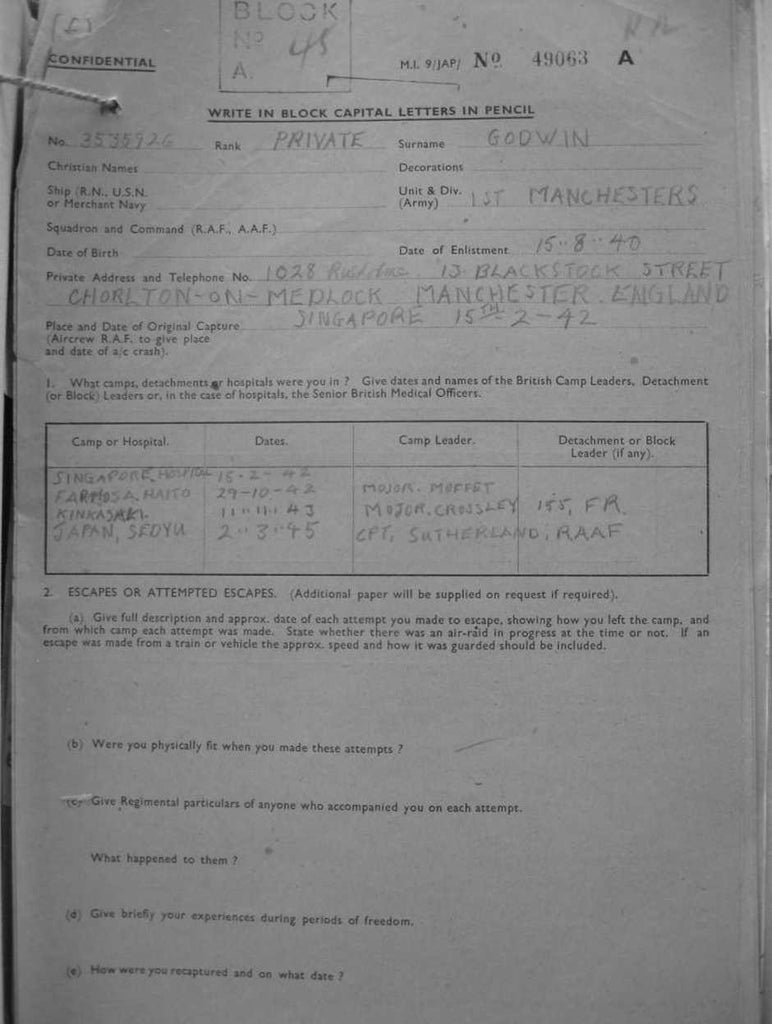 BLOCK
Nº 45
A.
CONFIDENTIAL
M.I. 9/JAP/ Nº 49063 A
WRITE IN BLOCK CAPITAL LETTERS IN PENCIL
No. 3535926 Rank PRIVATE Surname GODWIN
Christian Names Decorations
Ship (R.N., U.S.N. or Merchant Navy Unit & Div. (Army) 1ST MANCHESTERS
Squadron and Command (R.A.F., A.A.F.)
Date of Birth Date of Enlistment 15-8-40
Private Address and Telephone No. 13 BLACKSTOCK STREET
CHORLTON-ON-MEDLOCK MANCHESTER. ENGLAND
Place and Date of Original Capture SINGAPORE 15TH-2-42
(Aircrew R.A.F. to give place
and date of a/c crash).
1. What camps, detachments or hospitals were you in ? Give dates and names of the British Camp Leaders, Detachment
(or Block) Leaders or, in the case of hospitals, the Senior British Medical Officers.
Camp or Hospital. Dates. Camp Leader. Detachment or Block Leader (if any).
SINGAPORE, HOSPITAL 15-2-42
FARMOSA, HAITO 29-10-42 MOJOR. MOFFET
KINKASAKI. 11-11-43 MOJOR. CROSSLEY 155, FR.
JAPAN, SEDYU 2-3-45 CPT, SUTHERLAND, RAAF
2. ESCAPES OR ATTEMPTED ESCAPES. (Additional paper will be supplied on request if required).
(a) Give full description and approx. date of each attempt you made to escape, showing how you left the camp, and
from which camp each attempt was made. State whether there was an air-raid in progress at the time or not. If an
escape was made from a train or vehicle the approx. speed and how it was guarded should be included.
(b) Were you physically fit when you made these attempts ?
(c) Give Regimental particulars of anyone who accompanied you on each attempt.
What happened to them ?
(d) Give briefly your experiences during periods of freedom.
(e) How were you recaptured and on what date ?